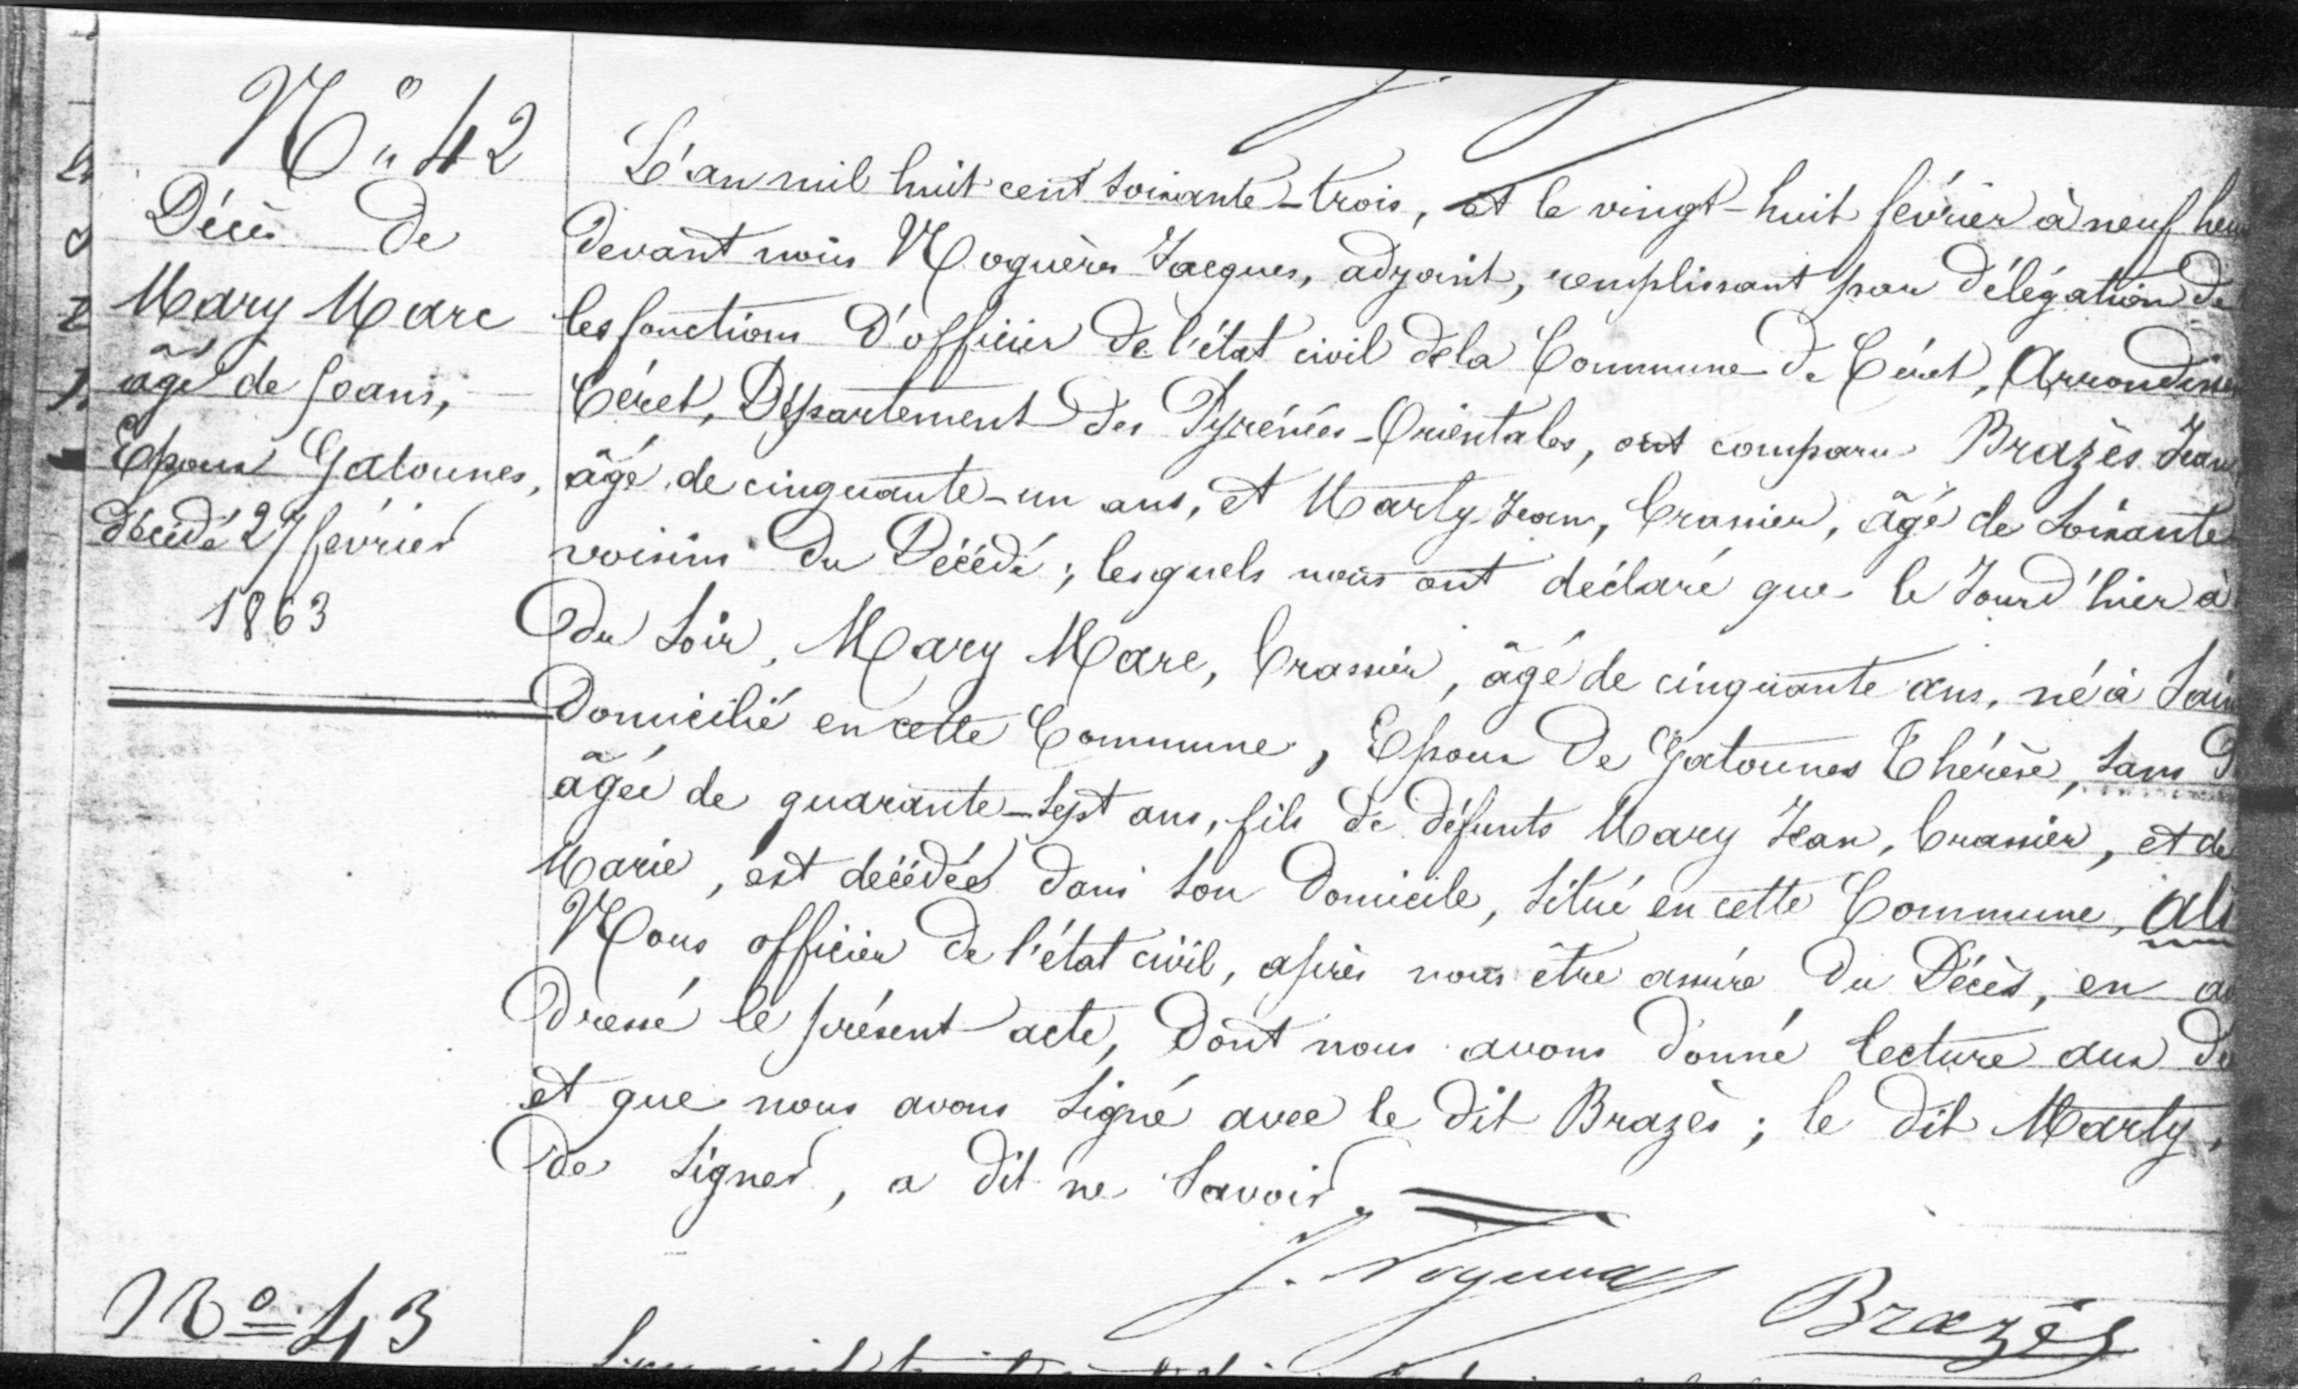 N° 42
Décès de
Mary Marc
âgé de 50 ans,
Epoux Gatounes,
décédé 27 février
1863
L'an mil huit cent soixante-trois, et le vingt-huit février à neuf heu
devant nous Noguères Jacques, adjoint, remplissant par délégation de
les fonctions d'officier de l'état civil de la Commune de Céret, Arrondisse
Céret, Département des Pyrénées-Orientales, ont comparu Brazès Jean
âgé de cinquante-un ans, et Marty Jean, Brassier, âgé de soixante
voisins du Décédé; lesquels nous ont déclaré que le Jour d'hier à
du soir, Mary Marc, Brassier, âgé de cinquante ans, né à Sain
Domicilié en cette Commune, Epoux de Gatounes Thérèse, sans
âgée de quarante-sept ans, fils de défunts Mary Jean, Brassier, et de
Marie, est décédée dans son Domicile, situé en cette Commune,
Nous officier de l'état civil, après nous être assuré du Décès, en a
dressé le présent acte, Dont nous avons donné lecture aux
et que nous avons signé avec le dit Brazès; le dit Marty,
de signer, a dit ne savoir.
J. Noguères
Brazès
N° 43